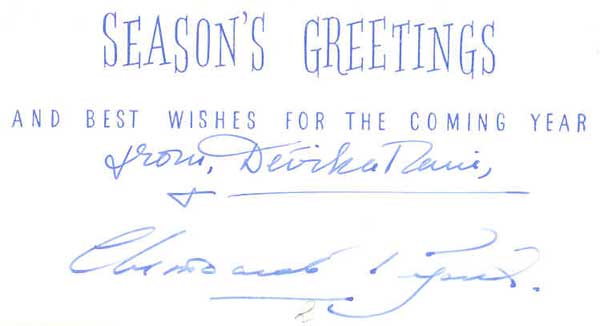 SEASON'S GREETINGS
AND BEST WISHES FOR THE COMING YEAR
from, Devika Rani,